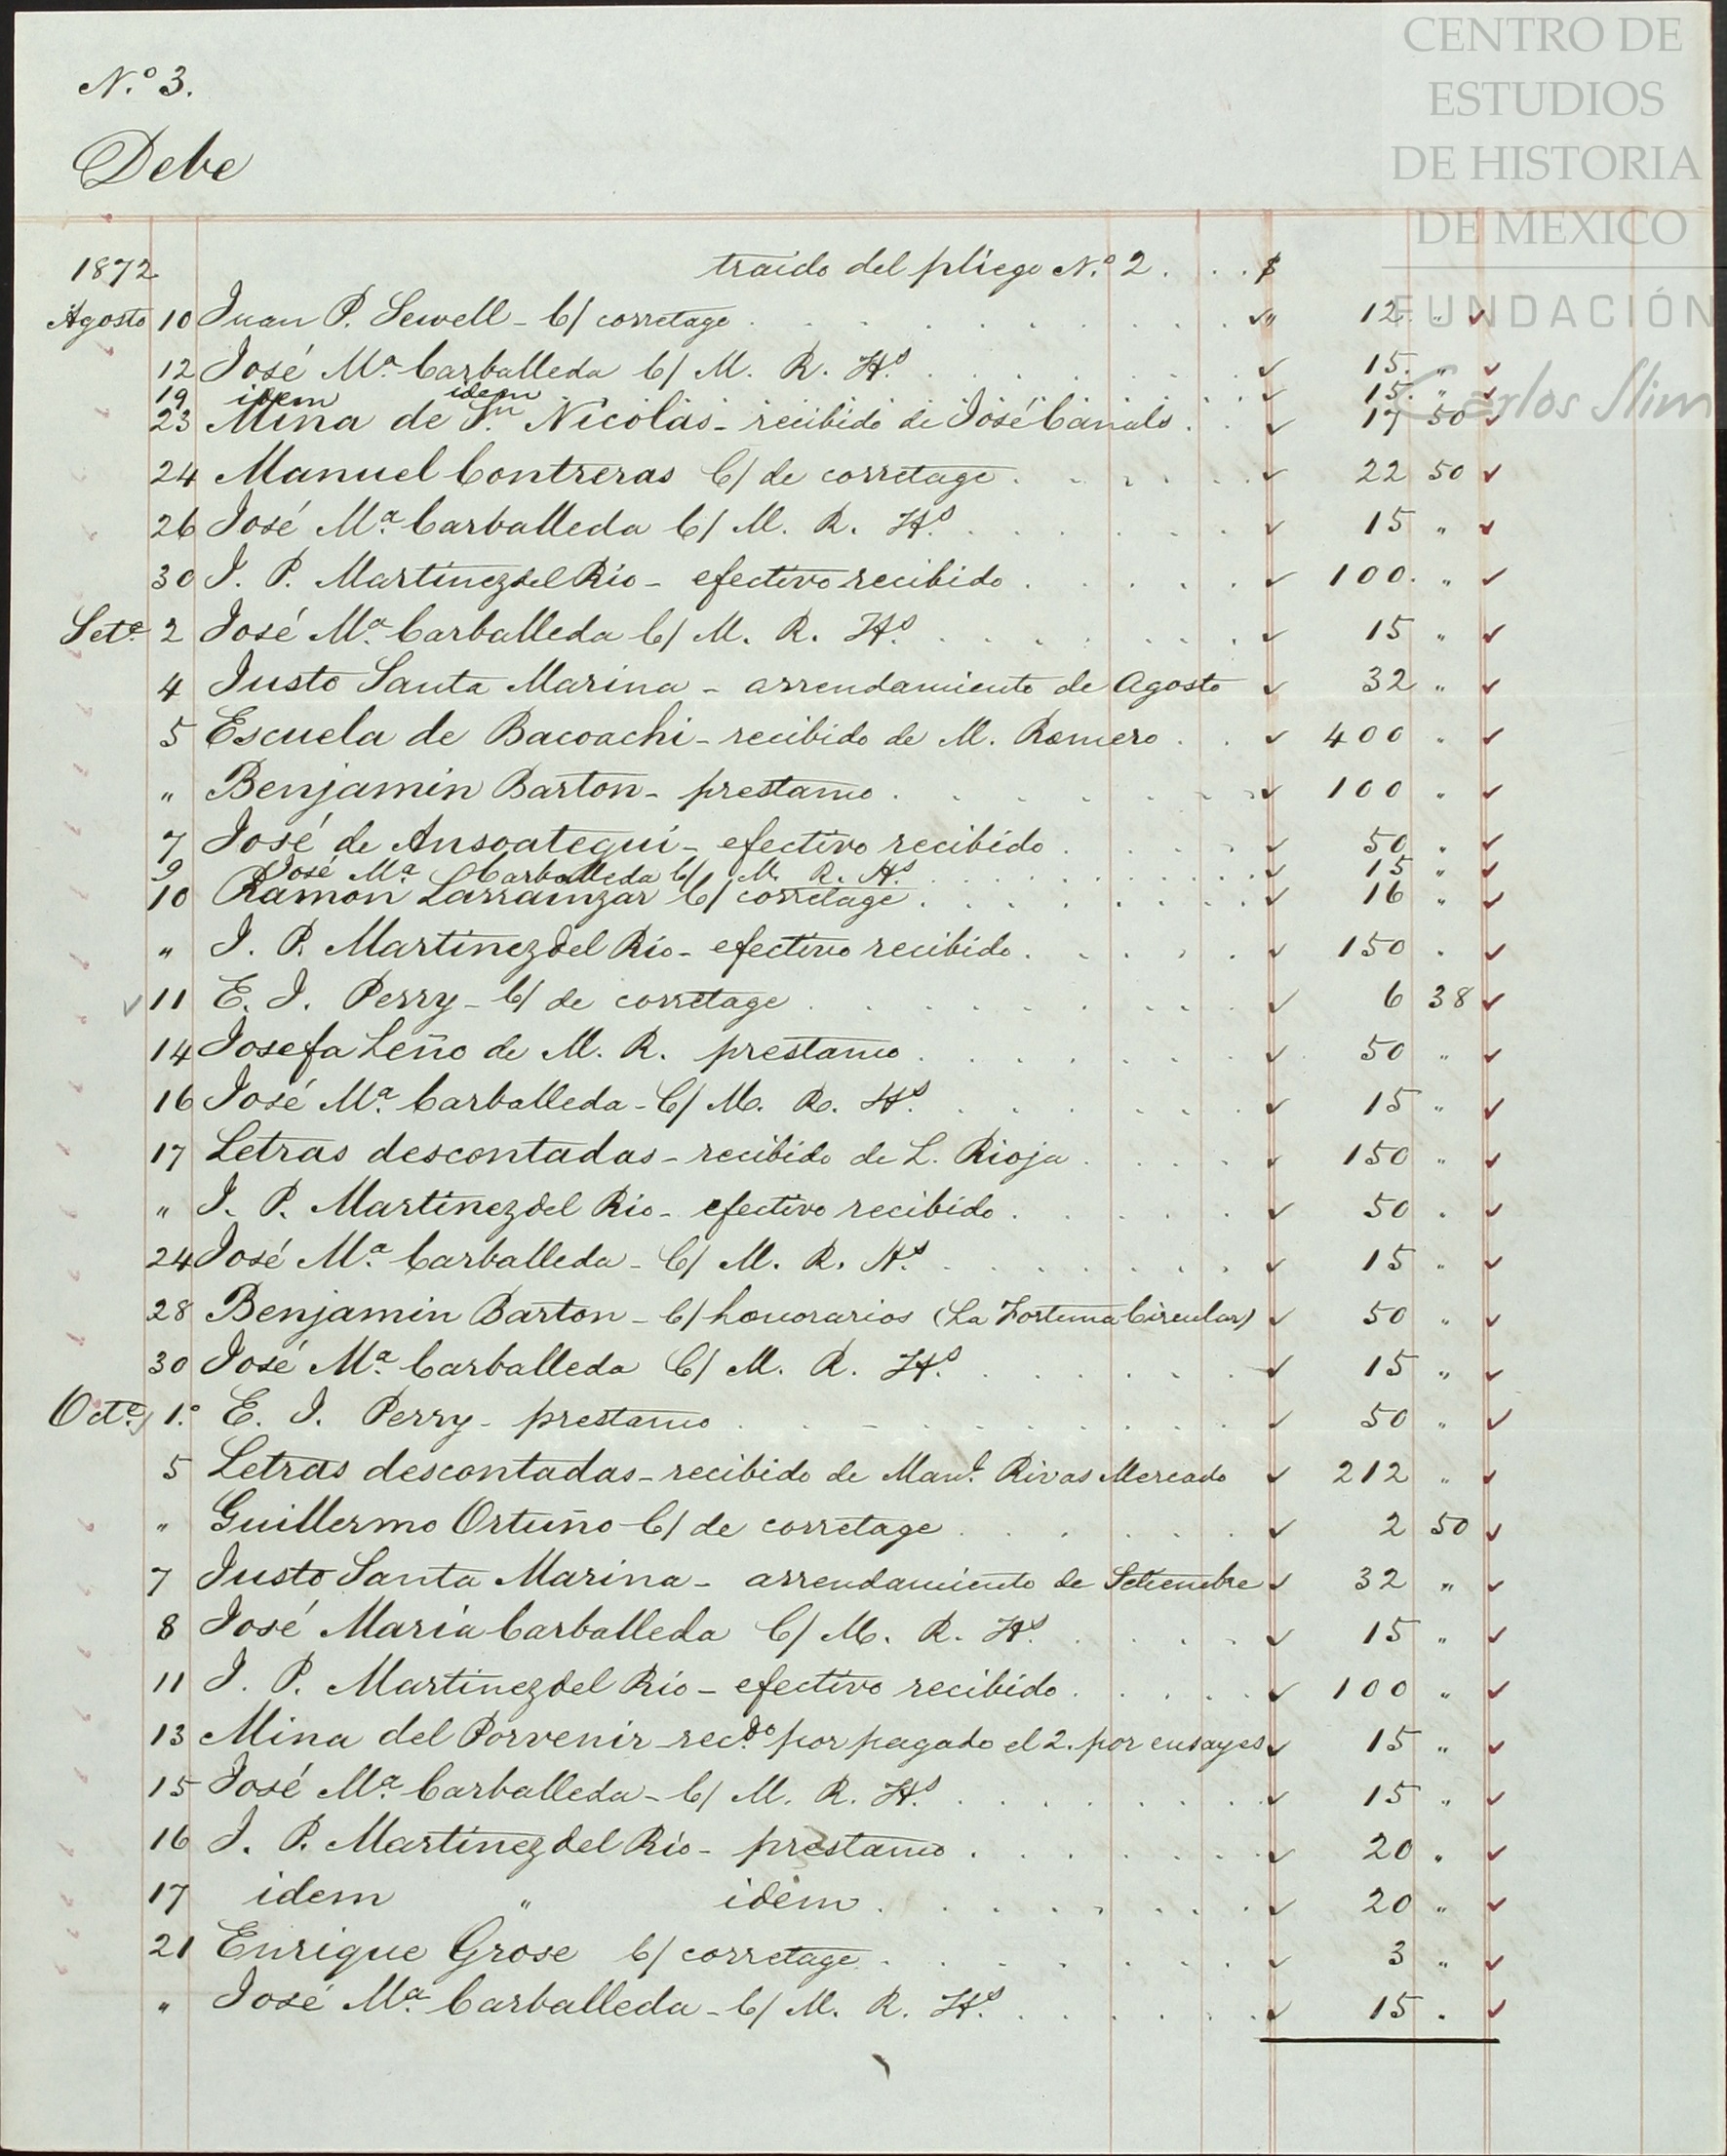 CENTRO DE
ESTUDIOS
DE HISTORIA
DE MEXICO
FUNDACIÓN
Carlos Slim
N.º 3.
Debe
1872 traido del pliego N.º 2 . . . $
Agosto 10 Juan P. Sewell - C/ corretage 12 "
12 José Mª Carballeda C/ M. R. Hs. 15. "
19 idem idem 15. "
23 Mina de Sn. Nicolás - recibido de José Canalo 17 50
24 Manuel Contreras C/ de corretage 22 50
26 José Mª Carballeda C/ M. R. Hs. 15 "
30 J. P. Martinez del Rio - efectivo recibido 100. "
Sete. 2 José Mª Carballeda C/ M. R. Hs. 15 "
4 Justo Santa Marina - arrendamiento de Agosto 32 "
5 Escuela de Bacoachi - recibido de M. Romero 400 "
" Benjamin Barton - prestamo 100 "
7 José de Ansoategui - efectivo recibido 50 "
9 José Mª Carballeda C/ M. R. Hs. 15 "
10 Ramon Larrainzar C/ corretage 16 "
" J. P. Martinez del Rio - efectivo recibido 150 "
11 E. J. Perry - C/ de corretage 6 38
14 Josefa Leño de M. R. prestamo 50 "
16 José Mª Carballeda - C/ M. R. Hs. 15 "
17 Letras descontadas - recibido de L. Rioja 150 "
" J. P. Martinez del Rio - efectivo recibido 50 "
24 José Mª Carballeda - C/ M. R. Hs. 15 "
28 Benjamin Barton - C/ honorarios (La Fortuna Circular) 50 "
30 José Mª Carballeda C/ M. R. Hs. 15 "
Octe. 1.º E. J. Perry - prestamo 50 "
5 Letras descontadas - recibido de Manl. Rivas Mercado 212 "
" Guillermo Ortuño C/ de corretage 2 50
7 Justo Santa Marina - arrendamiento de Setiembre 32 "
8 José Maria Carballeda C/ M. R. Hs. 15 "
11 J. P. Martinez del Rio - efectivo recibido 100 "
13 Mina del Porvenir - recdo. por pagado el 2. por ensayes 15 "
15 José Mª Carballeda - C/ M. R. Hs. 15 "
16 J. P. Martinez del Rio - prestamo 20 "
17 idem " idem 20 "
21 Enrique Grose C/ corretage 3 "
" José Mª Carballeda - C/ M. R. Hs. 15 "